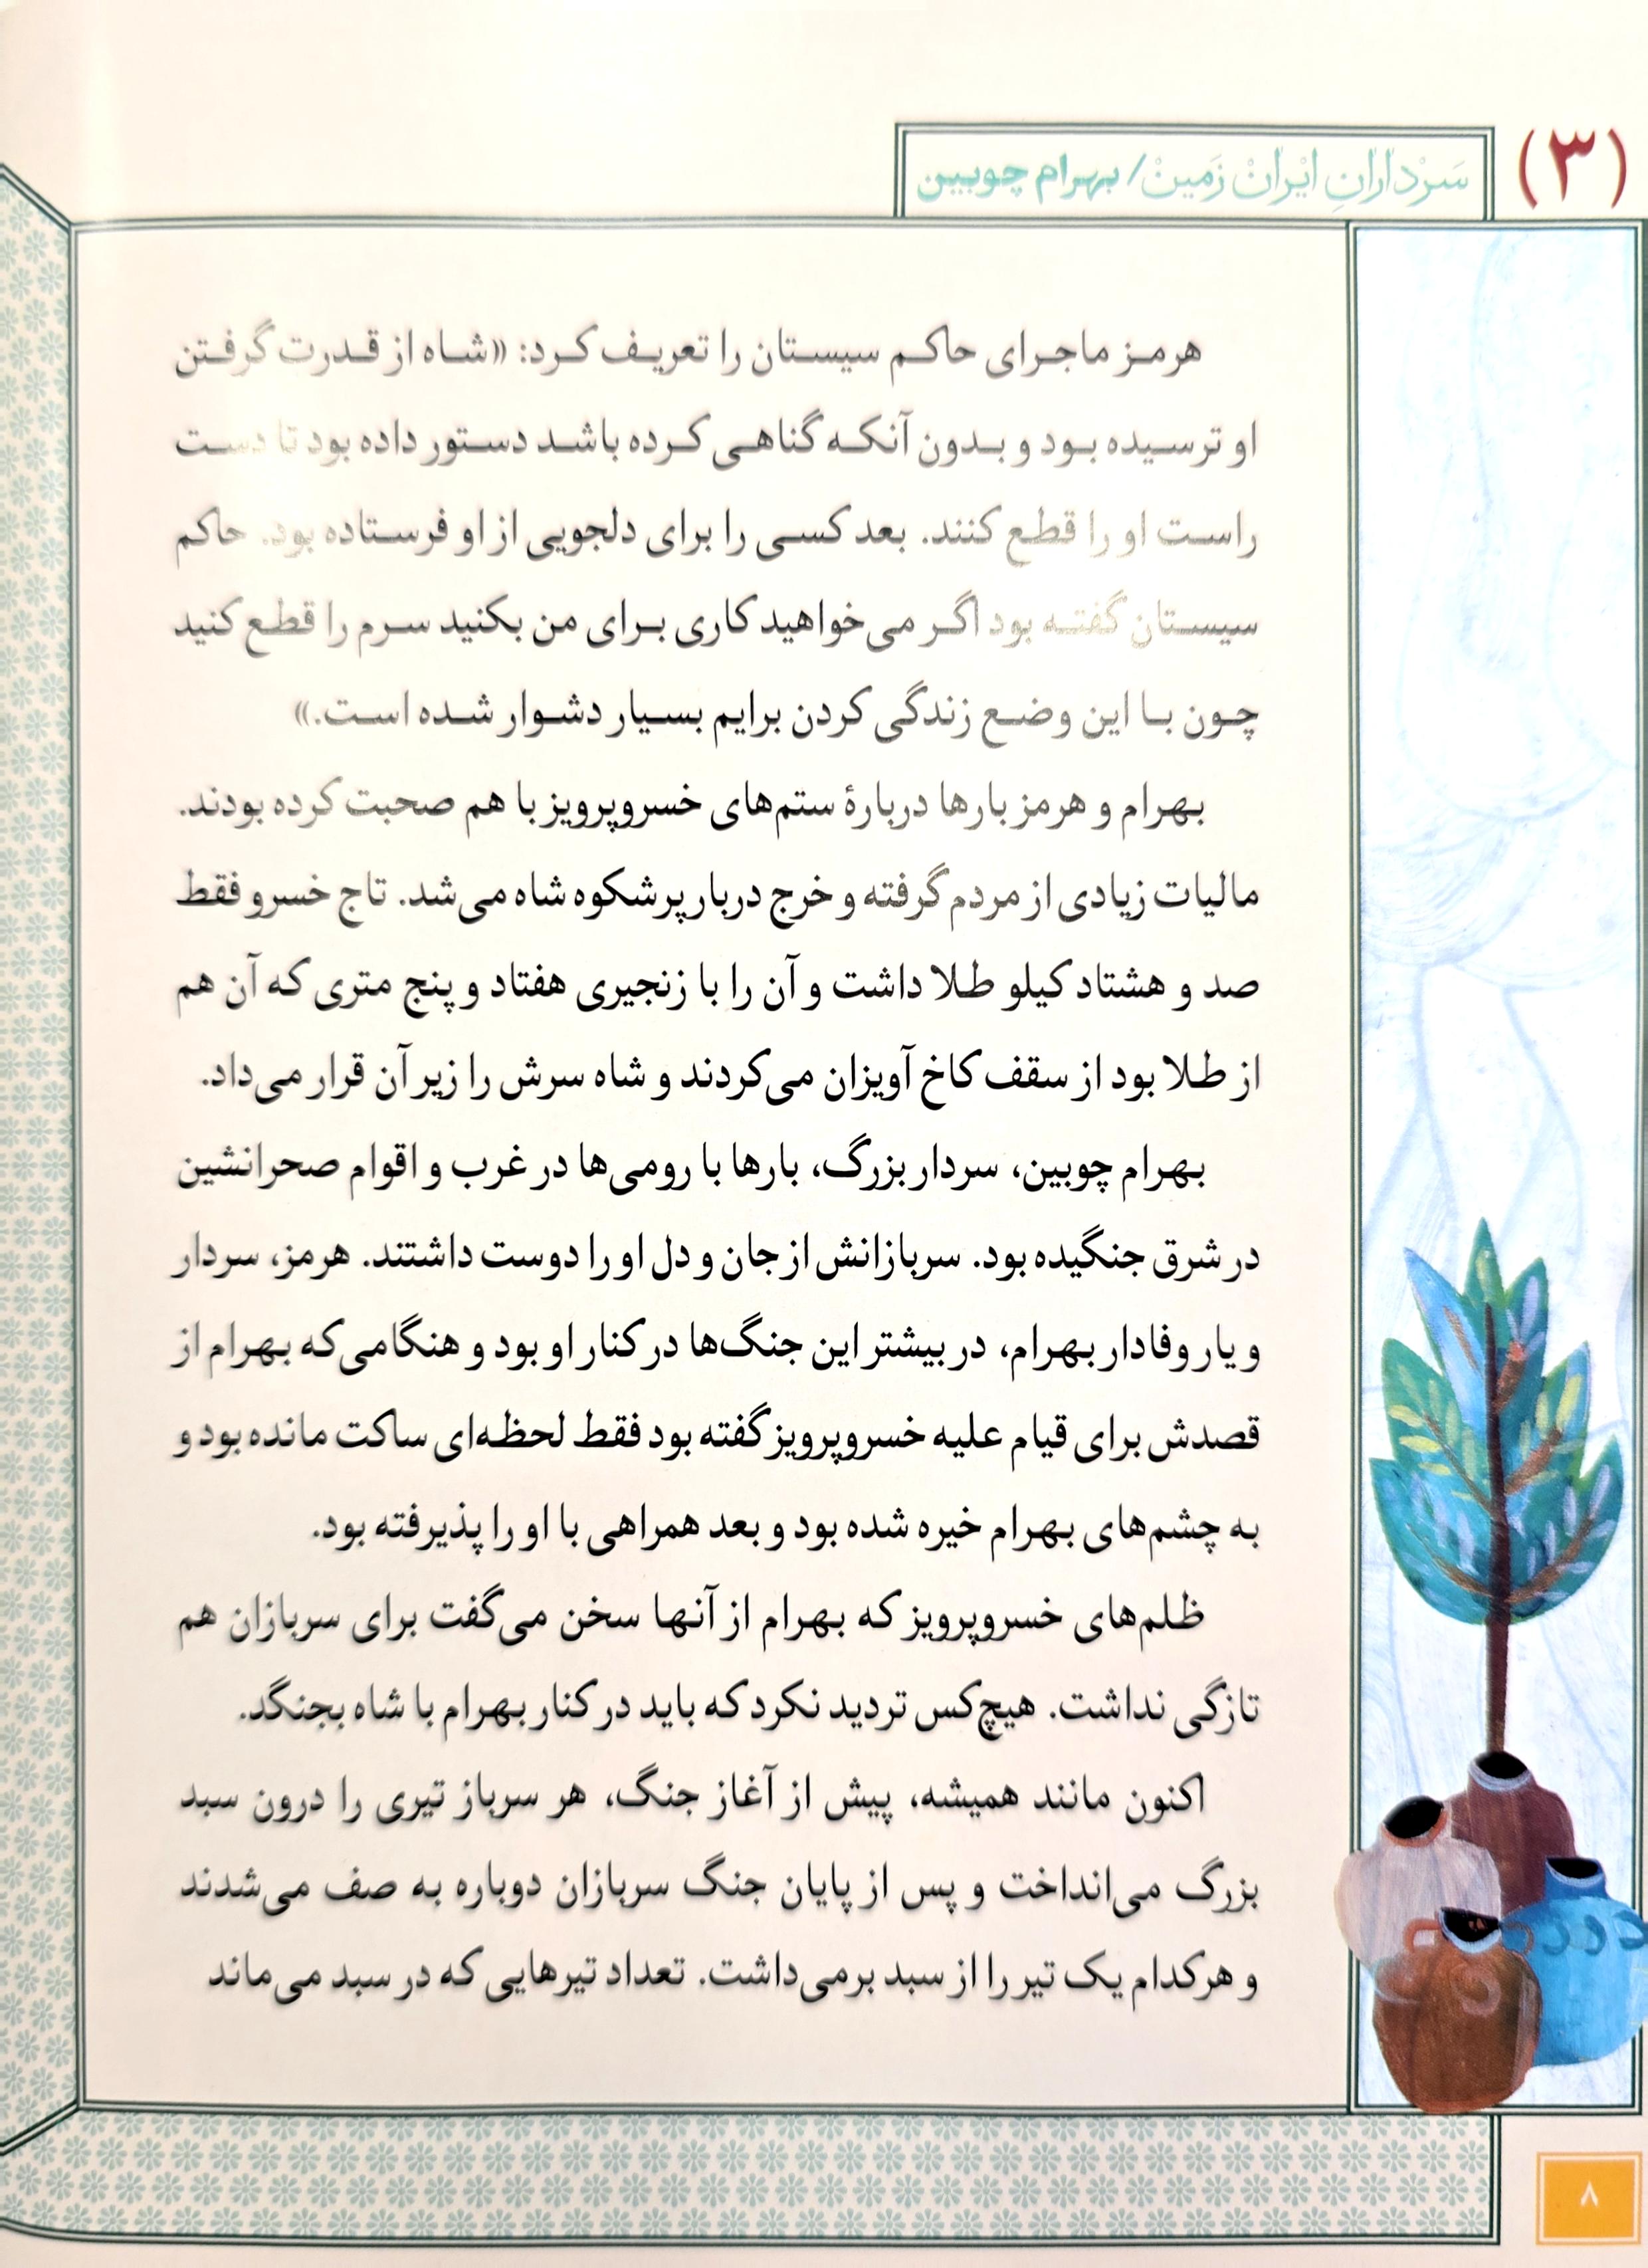 (۳)
سَرْدارانِ ایْرانْ زَمینْ/ بهرام چوبین
هرمز ماجرای حاکم سیستان را تعریف کرد: «شاه از قدرت گرفتن
او ترسیده بود و بدون آنکه گناهی کرده باشد دستور داده بود تا دست
راست او را قطع کنند. بعد کسی را برای دلجویی از او فرستاده بود. حاکم
سیستان گفته بود اگر می‌خواهید کاری برای من بکنید سرم را قطع کنید
چون با این وضع زندگی کردن برایم بسیار دشوار شده است.»
بهرام و هرمز بارها دربارهٔ ستم‌های خسروپرویز با هم صحبت کرده بودند.
مالیات زیادی از مردم گرفته و خرج دربار پرشکوه شاه می‌شد. تاج خسرو فقط
صد و هشتاد کیلو طلا داشت و آن را با زنجیری هفتاد و پنج متری که آن هم
از طلا بود از سقف کاخ آویزان می‌کردند و شاه سرش را زیر آن قرار می‌داد.
بهرام چوبین، سردار بزرگ، بارها با رومی‌ها در غرب و اقوام صحرانشین
در شرق جنگیده بود. سربازانش از جان و دل او را دوست داشتند. هرمز، سردار
و یار وفادار بهرام، در بیشتر این جنگ‌ها در کنار او بود و هنگامی‌که بهرام از
قصدش برای قیام علیه خسروپرویز گفته بود فقط لحظه‌ای ساکت مانده بود و
به چشم‌های بهرام خیره شده بود و بعد همراهی با او را پذیرفته بود.
ظلم‌های خسروپرویز که بهرام از آنها سخن می‌گفت برای سربازان هم
تازگی نداشت. هیچ‌کس تردید نکرد که باید در کنار بهرام با شاه بجنگد.
اکنون مانند همیشه، پیش از آغاز جنگ، هر سرباز تیری را درون سبد
بزرگ می‌انداخت و پس از پایان جنگ سربازان دوباره به صف می‌شدند
و هرکدام یک تیر را از سبد برمی‌داشت. تعداد تیرهایی که در سبد می‌ماند
۸